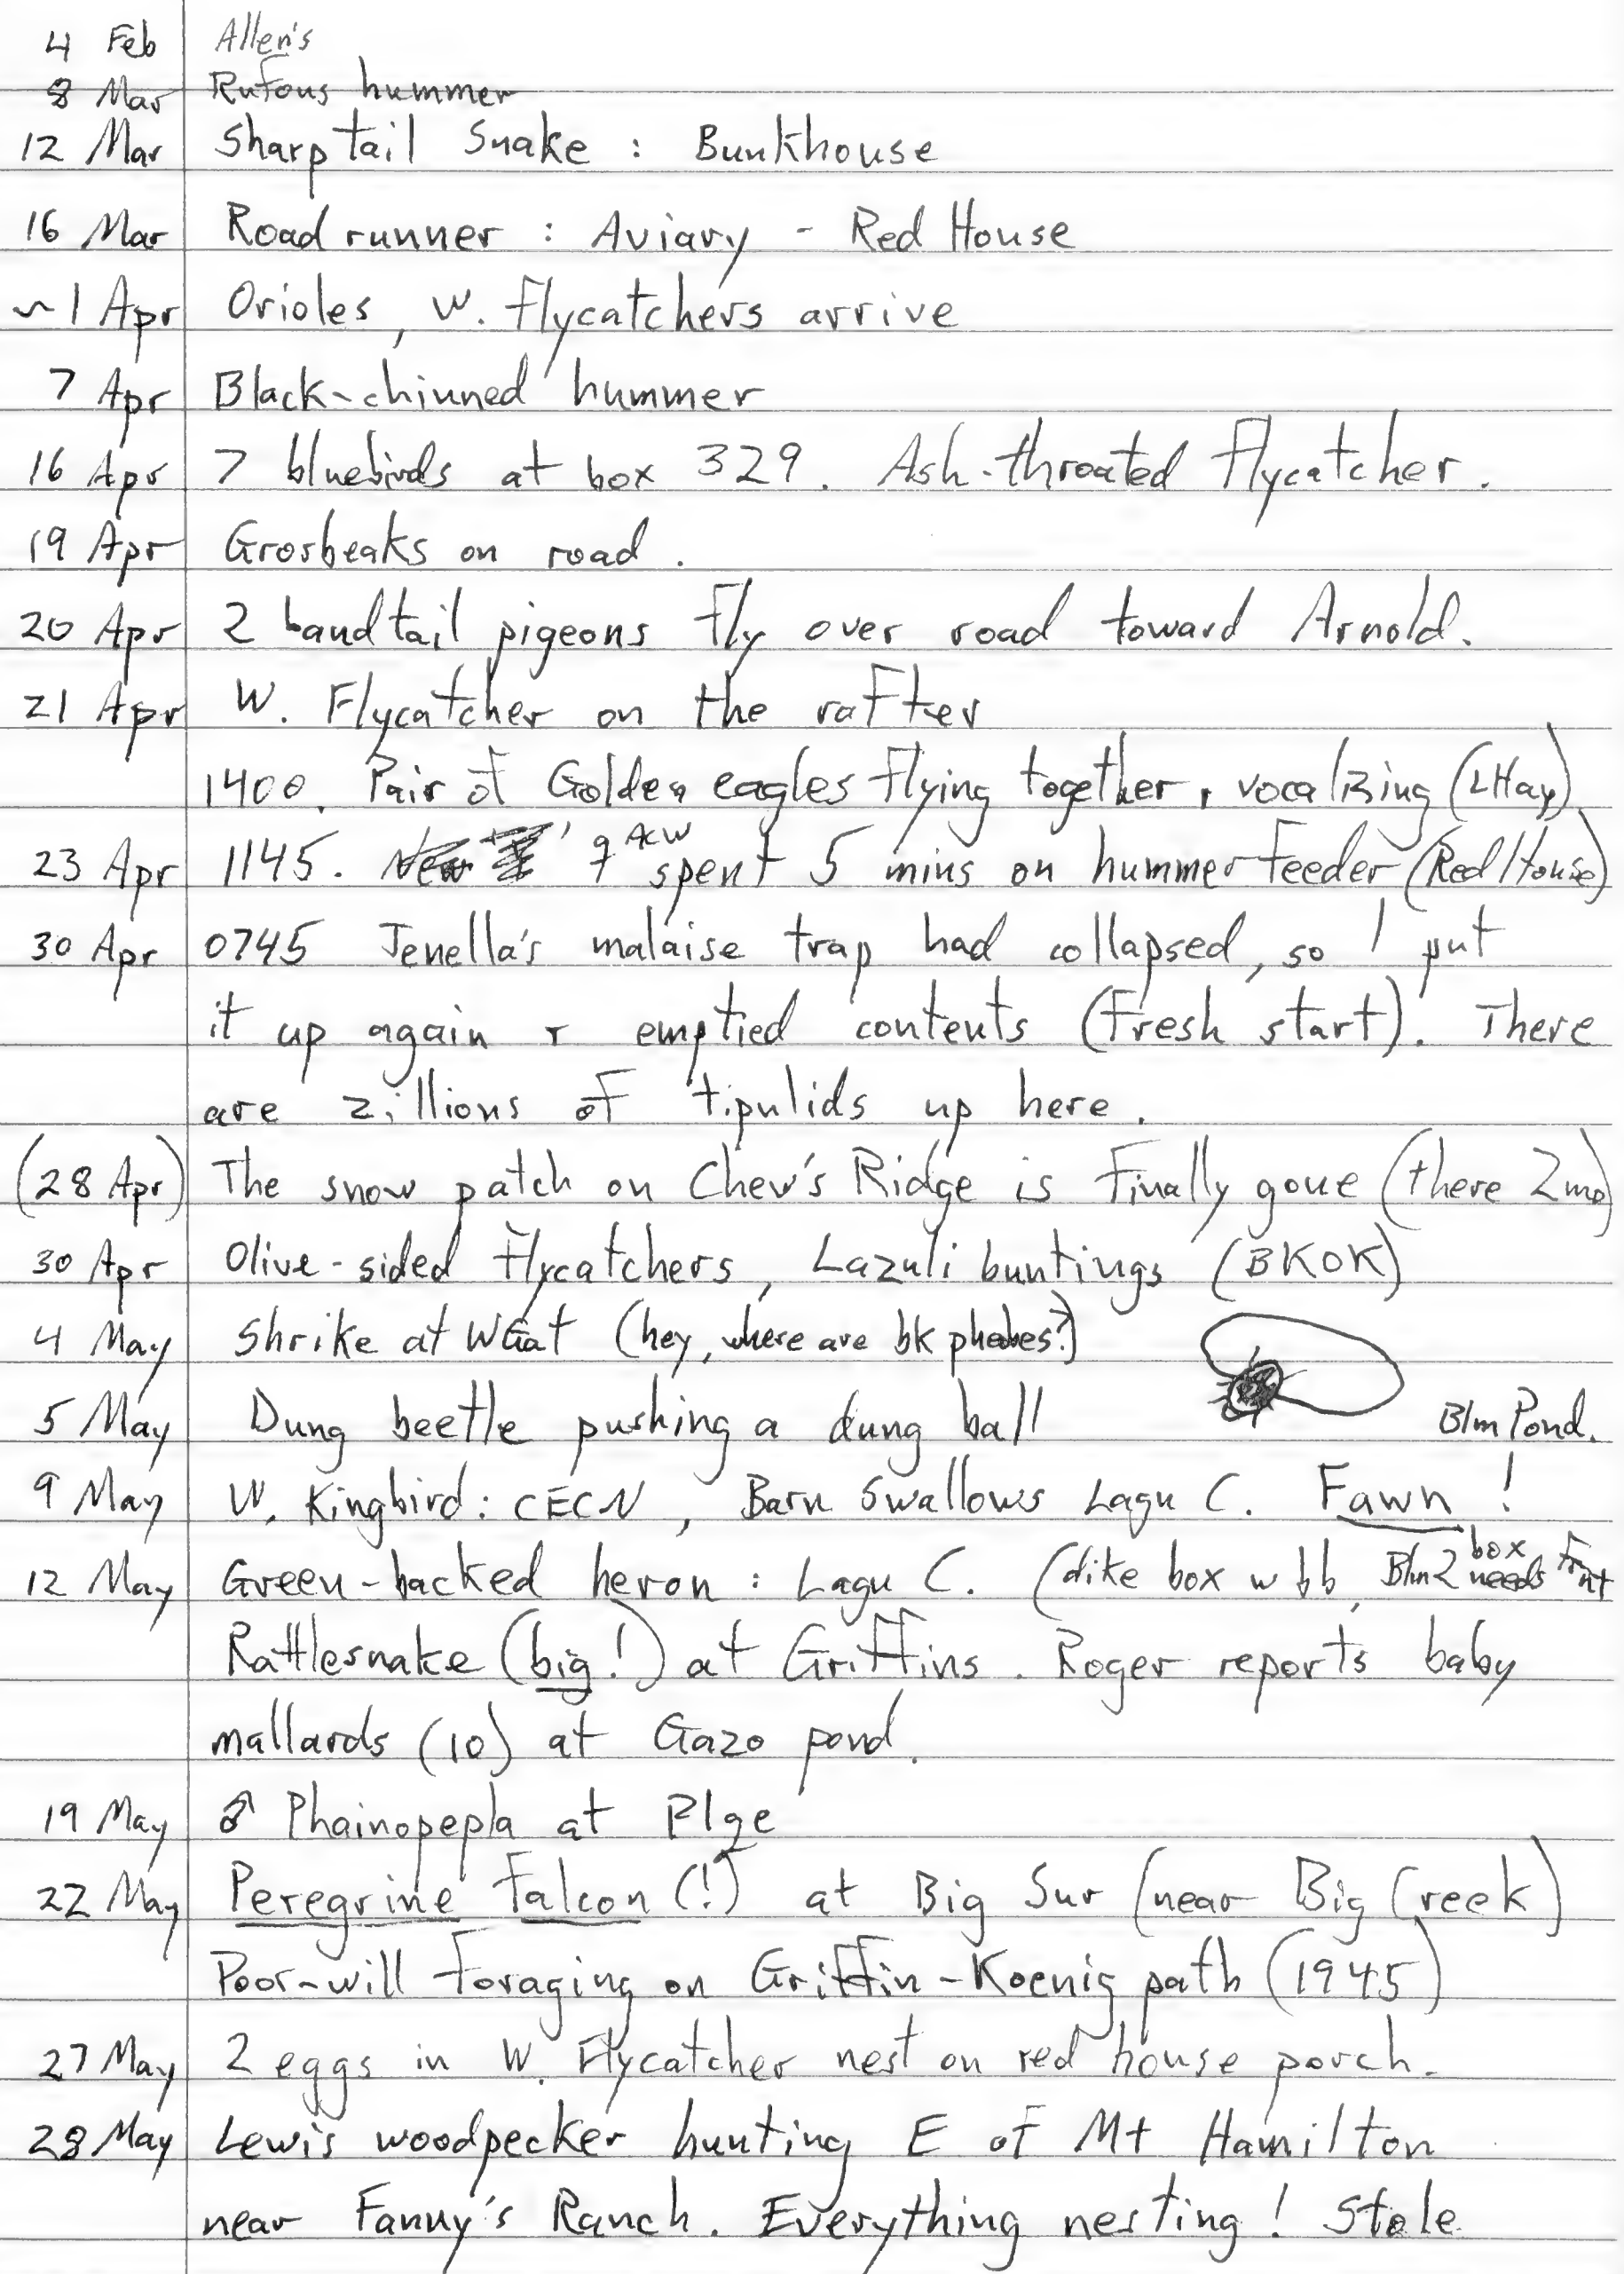 4 Feb Allen's
8 Mar Rufous hummer
12 Mar Sharptail Snake : Bunkhouse
16 Mar Roadrunner : Aviary - Red House
~1 Apr Orioles, W. flycatchers arrive
7 Apr Black-chinned hummer
16 Apr 7 bluebirds at box 329. Ash-throated Flycatcher.
19 Apr Grosbeaks on road.
20 Apr 2 bandtail pigeons fly over road toward Arnold.
21 Apr W. Flycatcher on the rafter
1400. Pair of Golden eagles flying together, vocalizing (LHay)
23 Apr 1145. ♀ ACW spent 5 mins on hummer feeder (Red House)
30 Apr 0745 Jenella's malaise trap had collapsed, so I put
it up again + emptied contents (fresh start). There
are zillions of tipulids up here.
(28 Apr) The snow patch on Chew's Ridge is finally gone (there 2mo)
30 Apr Olive-sided flycatchers, Lazuli buntings (BKOK)
4 May Shrike at WGat (hey, where are bk phoebes?)
5 May Dung beetle pushing a dung ball Blm Pond.
9 May W. Kingbird: CECN, Barn Swallows Lagu C. Fawn!
12 May Green-backed heron : Lagu C. (dike box w bb, Blm2 box needs front
Rattlesnake (big!) at Griffins. Roger reports baby
mallards (10) at Gazo pond.
19 May ♂ Phainopepla at Plge
22 May Peregrine falcon (!) at Big Sur (near Big Creek)
Poor-will foraging on Griffin-Koenig path (1945)
27 May 2 eggs in W. Flycatcher nest on red house porch.
28 May Lewis woodpecker hunting E of Mt Hamilton
near Fanny's Ranch. Everything nesting! Stole